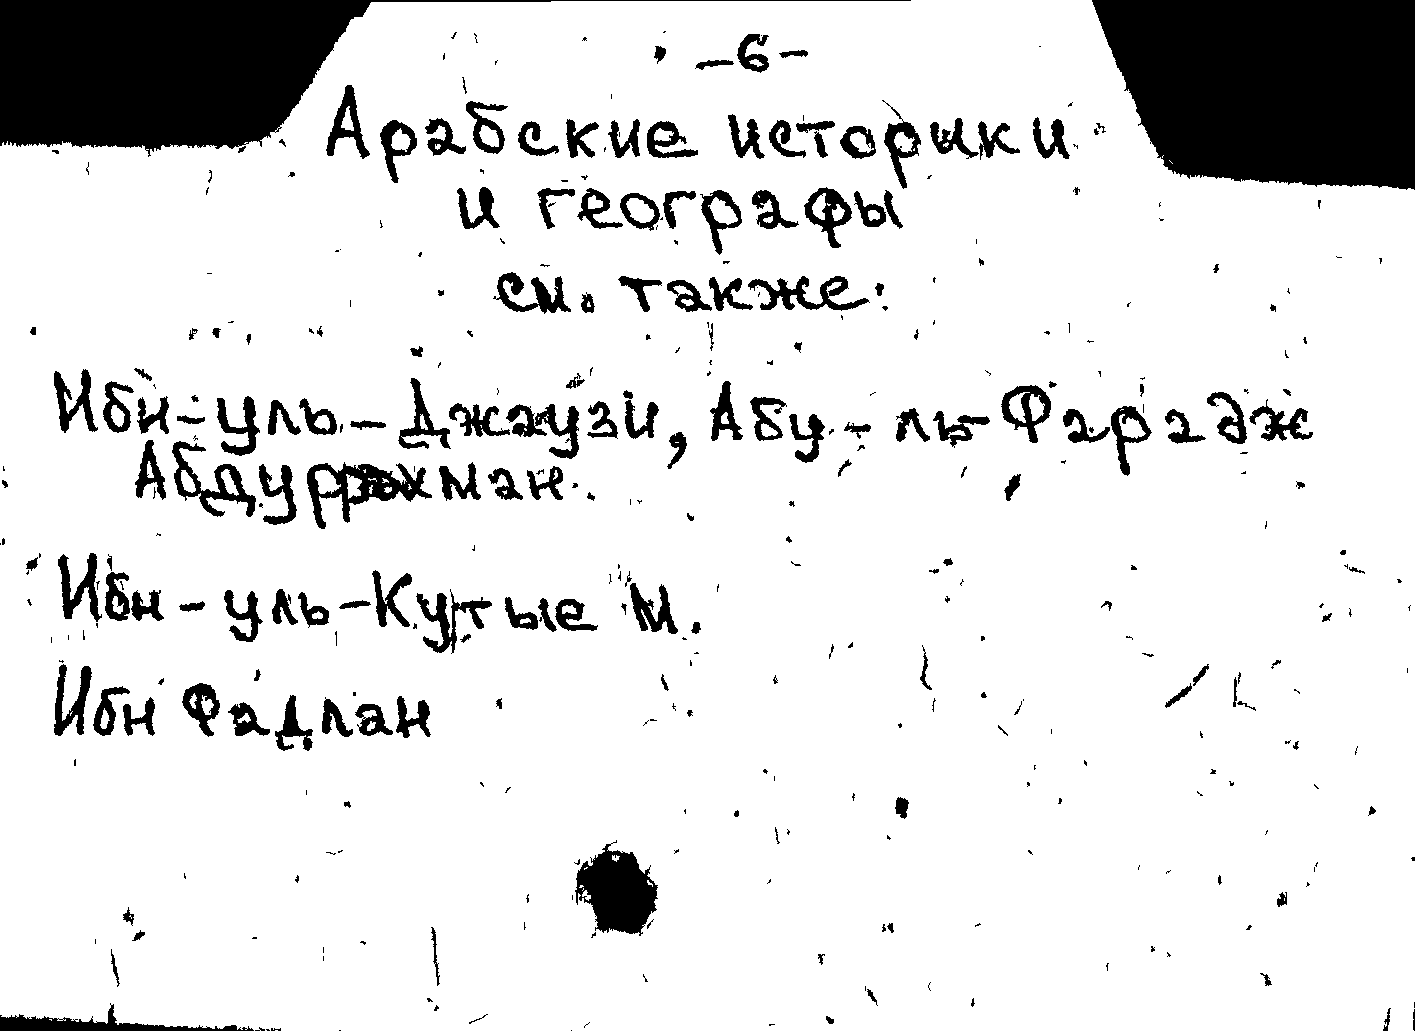 -6-
Арабские историки
и географы
см. также:
Ибн-уль-Джаузи, Абу-ль-Фарадж
Абдуррахман.
Ибн-уль-Кутые М.
Ибн Фадлан